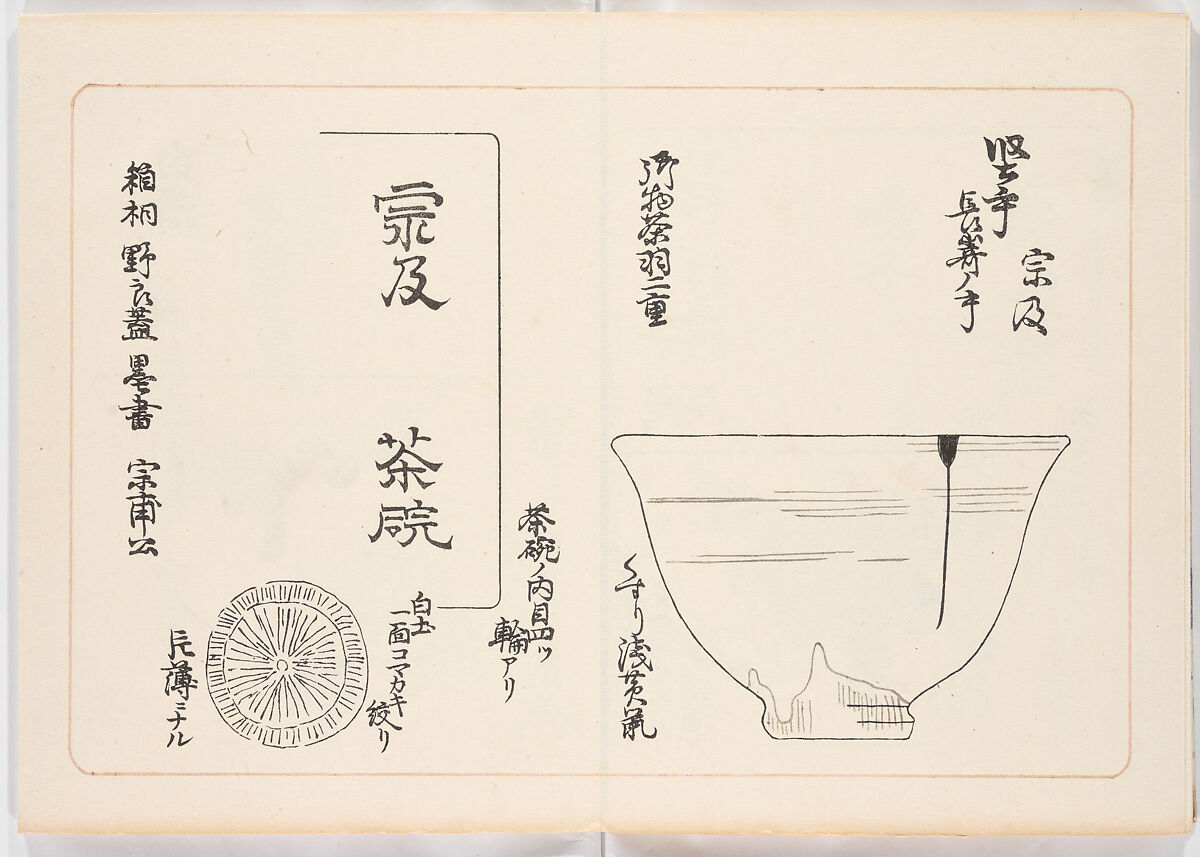 宗及
堅手
長壽ノ手
御物茶羽二重
くすり浅黄鼠
茶碗ノ内目四ツ
輪アリ
宗及 茶碗
白土
一面コマカキ
絞リ
片薄ミナル
箱桐 野良蓋 墨書 宗甫公